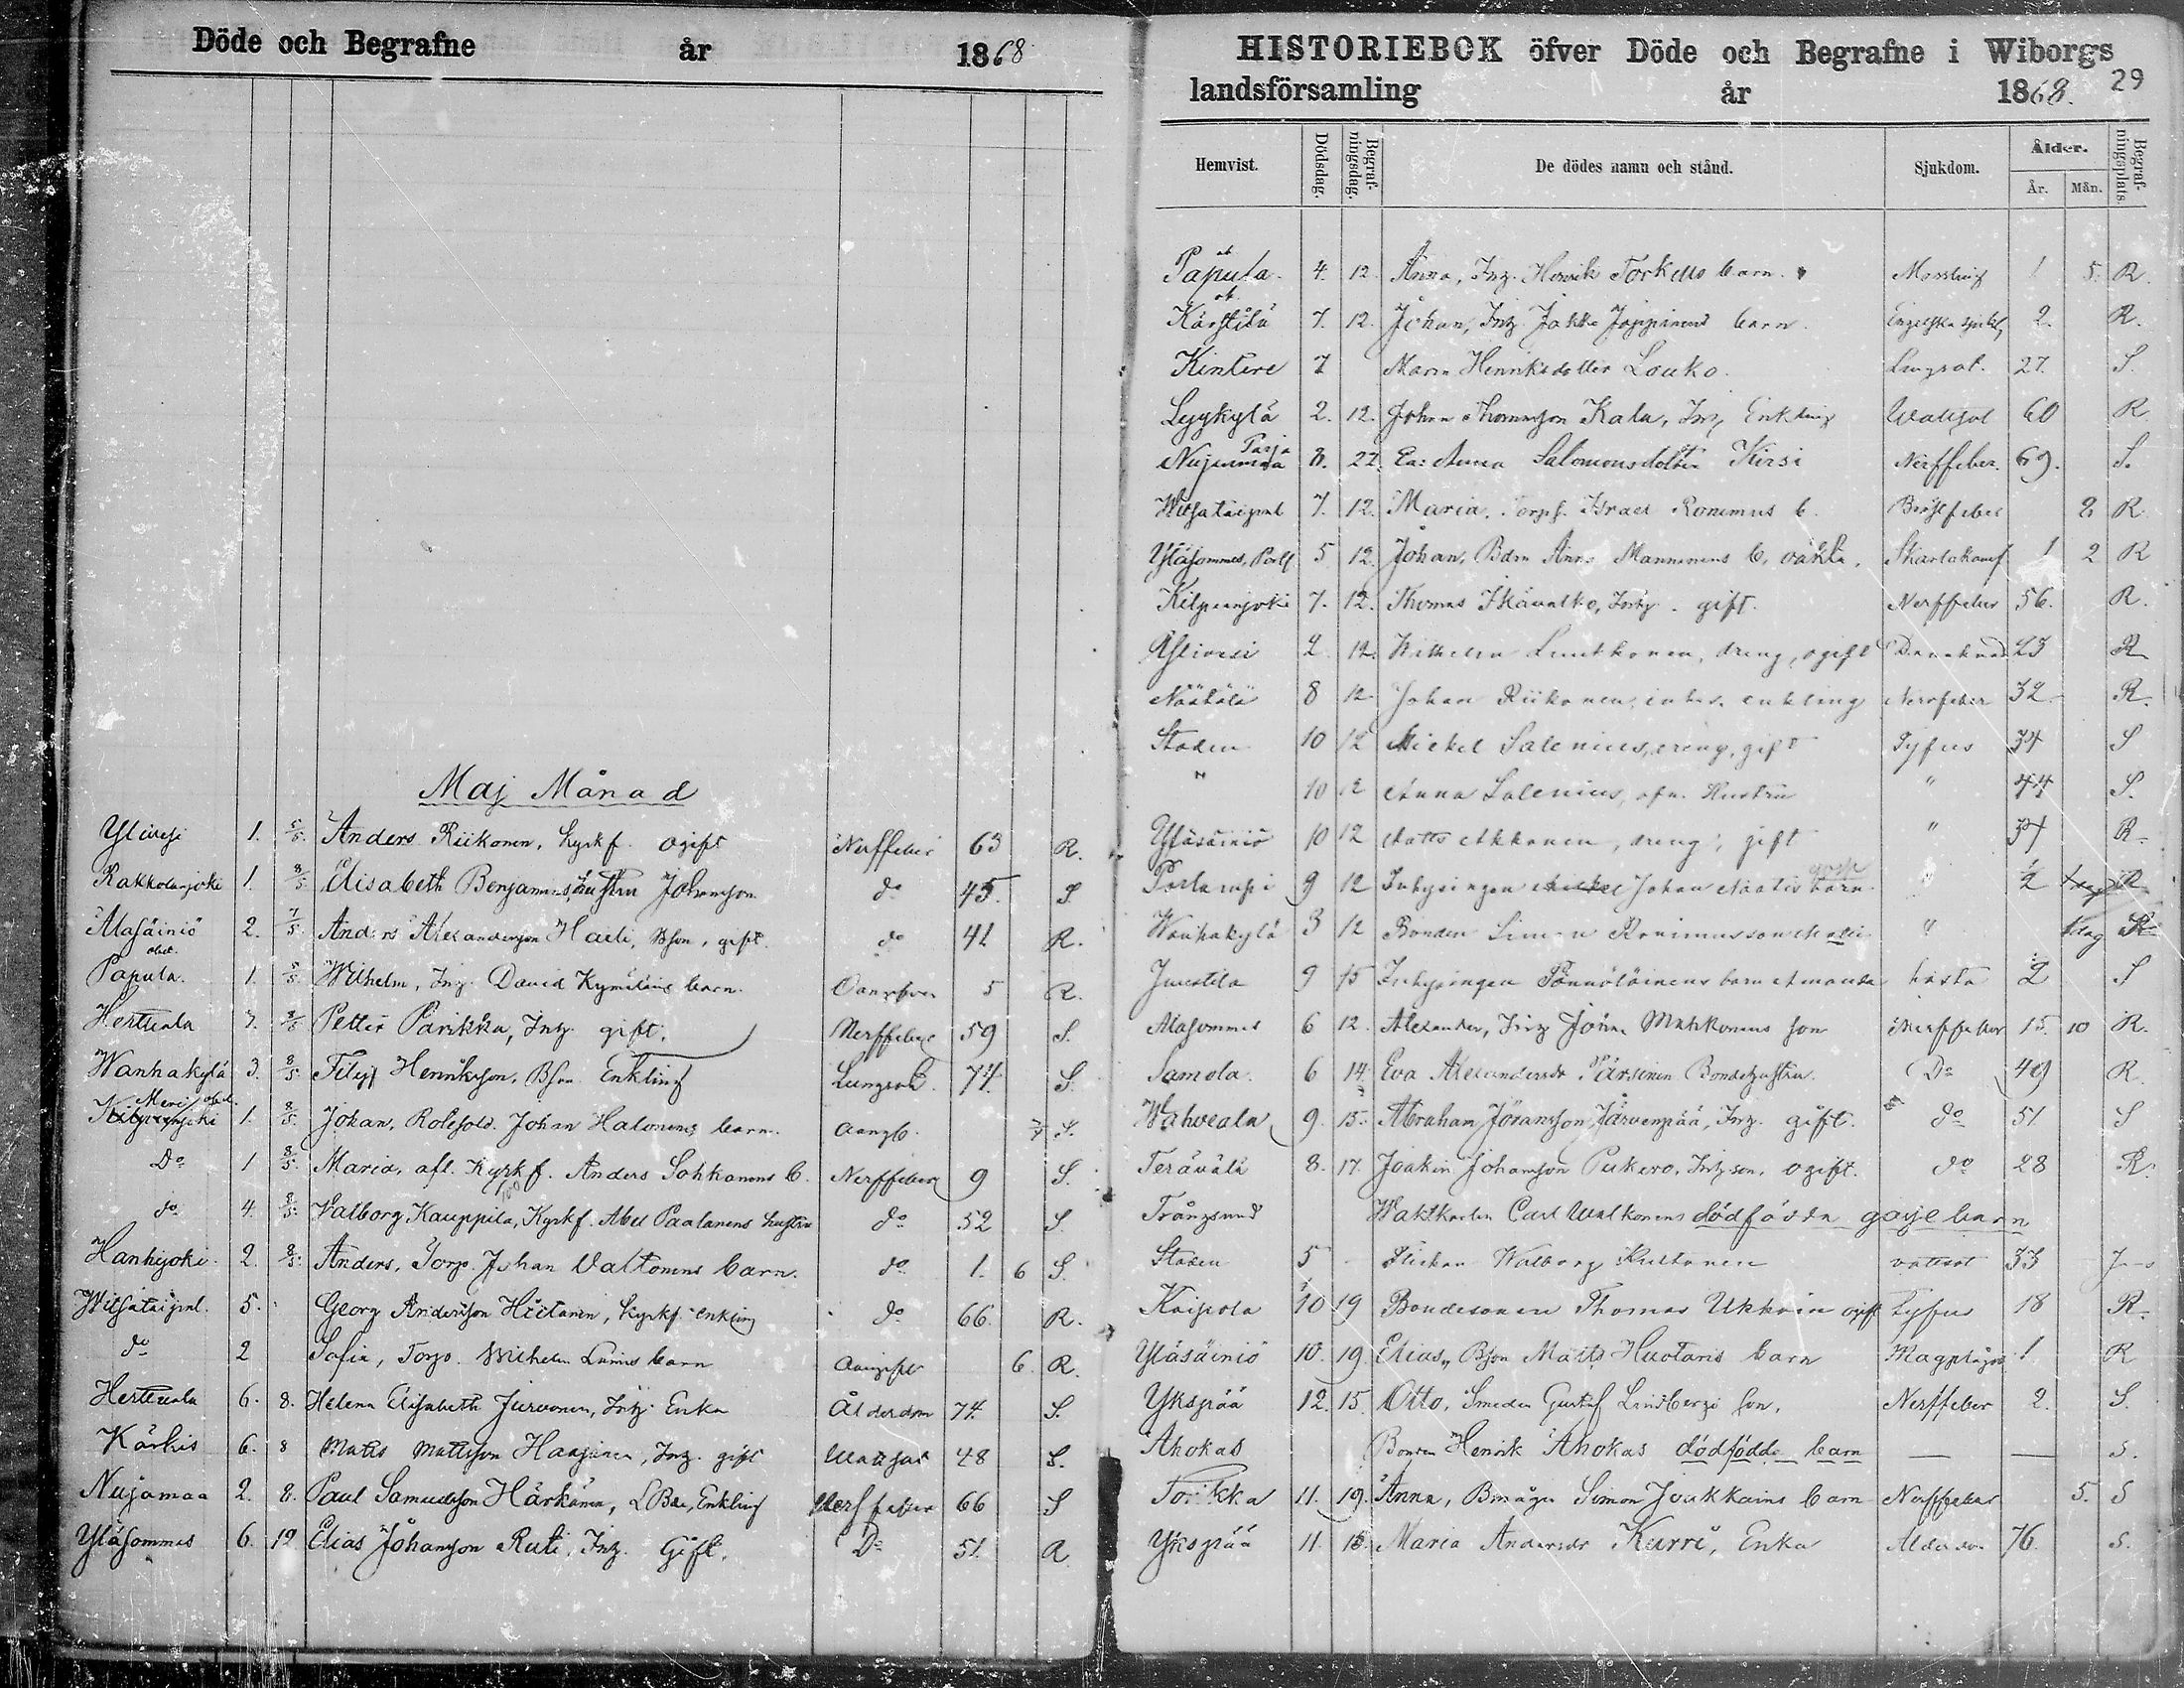 Döde och Begrafne år 1868
Maj Månad
Ylivesi 1. 8/5. Anders Riikonen, Kyrkf. ogift Nerffeber 63 R.
Rakkolanjoki 1. 8/5 Elisabeth Benjamins, hustru Johansson do 45. S.
Alasäiniö 2. 7/5. Anders Alexandersson Haili, Bson, gift. do 41 R.
Papula. 1. 8/5. Wilhelm, Inh. David Kymäläinens barn. 5 R.
Herttuala 3. 8/5 Petter Parikka, Inh. gift. Nerffeber 59 S.
Wanhakylä 3. 8/5 Filip Henriksson, Bson Enkling Lungsot. 74. S.
1. 8/5. Johan, Johan Halonens barn. S.
Do 1 8/5. Maria, afl. Kyrkf. Anders Sohkanens b. Nerffeber 9 S.
do 4. 8/5. Valborg Kauppila, Kyrkf. Abel Paalanens hustru do 52 S.
Hanhijoki. 2. 8/5. Anders, Torp. Johan Valtonens barn. do 1. 6 S.
5. Georg Andersson Hietanen, Kyrkf. enkling do 66. R.
do 2 Sofia, Torp. Wilhelm barn 6. R.
Herttuala 6. 8. Helena Elisabeth Jurvonen, Inh. Enka Ålderdom 74. S.
Kärkis 6. 8 Matts Mattsson Haajanen, Inh. gift Wattsot 48 S.
Nuijamaa 2. 8. Paul Samuelsson Härkönen, LBde, Enkling Nerffeber 66 S
Yläsommes 6. 12 Elias Johansson Ruti, Inh. Gift. Do 51. R
HISTORIEBOK öfver Döde och Begrafne i Wiborgs
landsförsamling år 1868. 29
Hemvist. Dödsdag. Begrafningsdag. De dödes namn och stånd. Sjukdom. Ålder. År. Mån. Begrafningsplats.
Papula. 4. 12. Anna, Inh. Henrik Torkells barn. Messling 1 5. R.
Kärstilä 7. 12. Johan, Inh. Jakko Joppinens barn. Engelska sjukd. 2. R.
Kintere 7 Maria Henriksdotter Louko. Lungsot. 27. S.
Lyykylä 2. 12. Johan Thomasson Kala, Inh. Enkling Wattsot 60 R.
Nuijamaa 8. 22. Anna Salomonsdotter Kirsi Nerffeber. 69. S.
7. 12. Maria, Torpf. Israel Ronimus b. Bröstfeber 2 R.
Yläsommes, 5 12. Johan, Bdrn Anna Manninens b. oäkta. Skarlakansf 1 2 R
Kilpeenjoki 7. 12. Thomas Ikävalko, Inh. gift. Nerffeber 56. R.
Ylivesi 2. 12. Wilhelm Luukkonen, dreng, ogift 23 R
Näätälä 8 12 Johan Riikonen, inhes. enkling Nervfeber 32 R.
Staden 10 12 Mickel Salenius, dreng, gift Tyfus 34 S
" 10 12 Anna Salenius, ofn. Hustru " 44 S.
Yläsäiniö 10 12 Matts Akkanen, dreng, gift " 34 R.
Portinmpi 9 12 Inhysingen Johan barn " 1/2 R
Wanhakylä 3 12 Bonden Simon Ronimus son " 1 dag R
Juustila 9 15 Inhysingen Pönnöläinens barn Amanda hosta 2 S
Alasommes 6 12. Alexander, Inh. Johan Mahkonens son Nerffeber 15. 10 R.
Samola. 6 14. Eva Alexandersdr Pärsinen Bondehustru. Do 49 R.
Wahvealn 9. 15. Abraham Jöransson Järvenpää, Inh. gift. do 51 S
Terävälä 8. 17. Joakim Johansson Pukero, Inh. son. ogift. do 28 R.
Trångsund Waktkarlen Carl Walkonens dödfödda gosse barn
Staden 5 Flickan Walborg Kultanen vattsot 33
Kaipola 10 19 Bondesonen Thomas Ukkoin ogift Tyfus 18 R.
Yläsäiniö 10. 19. Elias, Bson Matts Huotaris barn Magplågor 1 R
Ykspää 12. 15. Otto, Smeden Gustaf Lindbergs son. Nerffeber 2. S.
Ahokas Bonden Henrik Ahokas dödfödde barn — — S.
Torikka 11. 19. Anna, Bmågen Simon Joukkains barn Nerffeber 5. S
Ykspää 11. 15. Maria Andersdr Kurri, Enka Ålderdom 76. S.